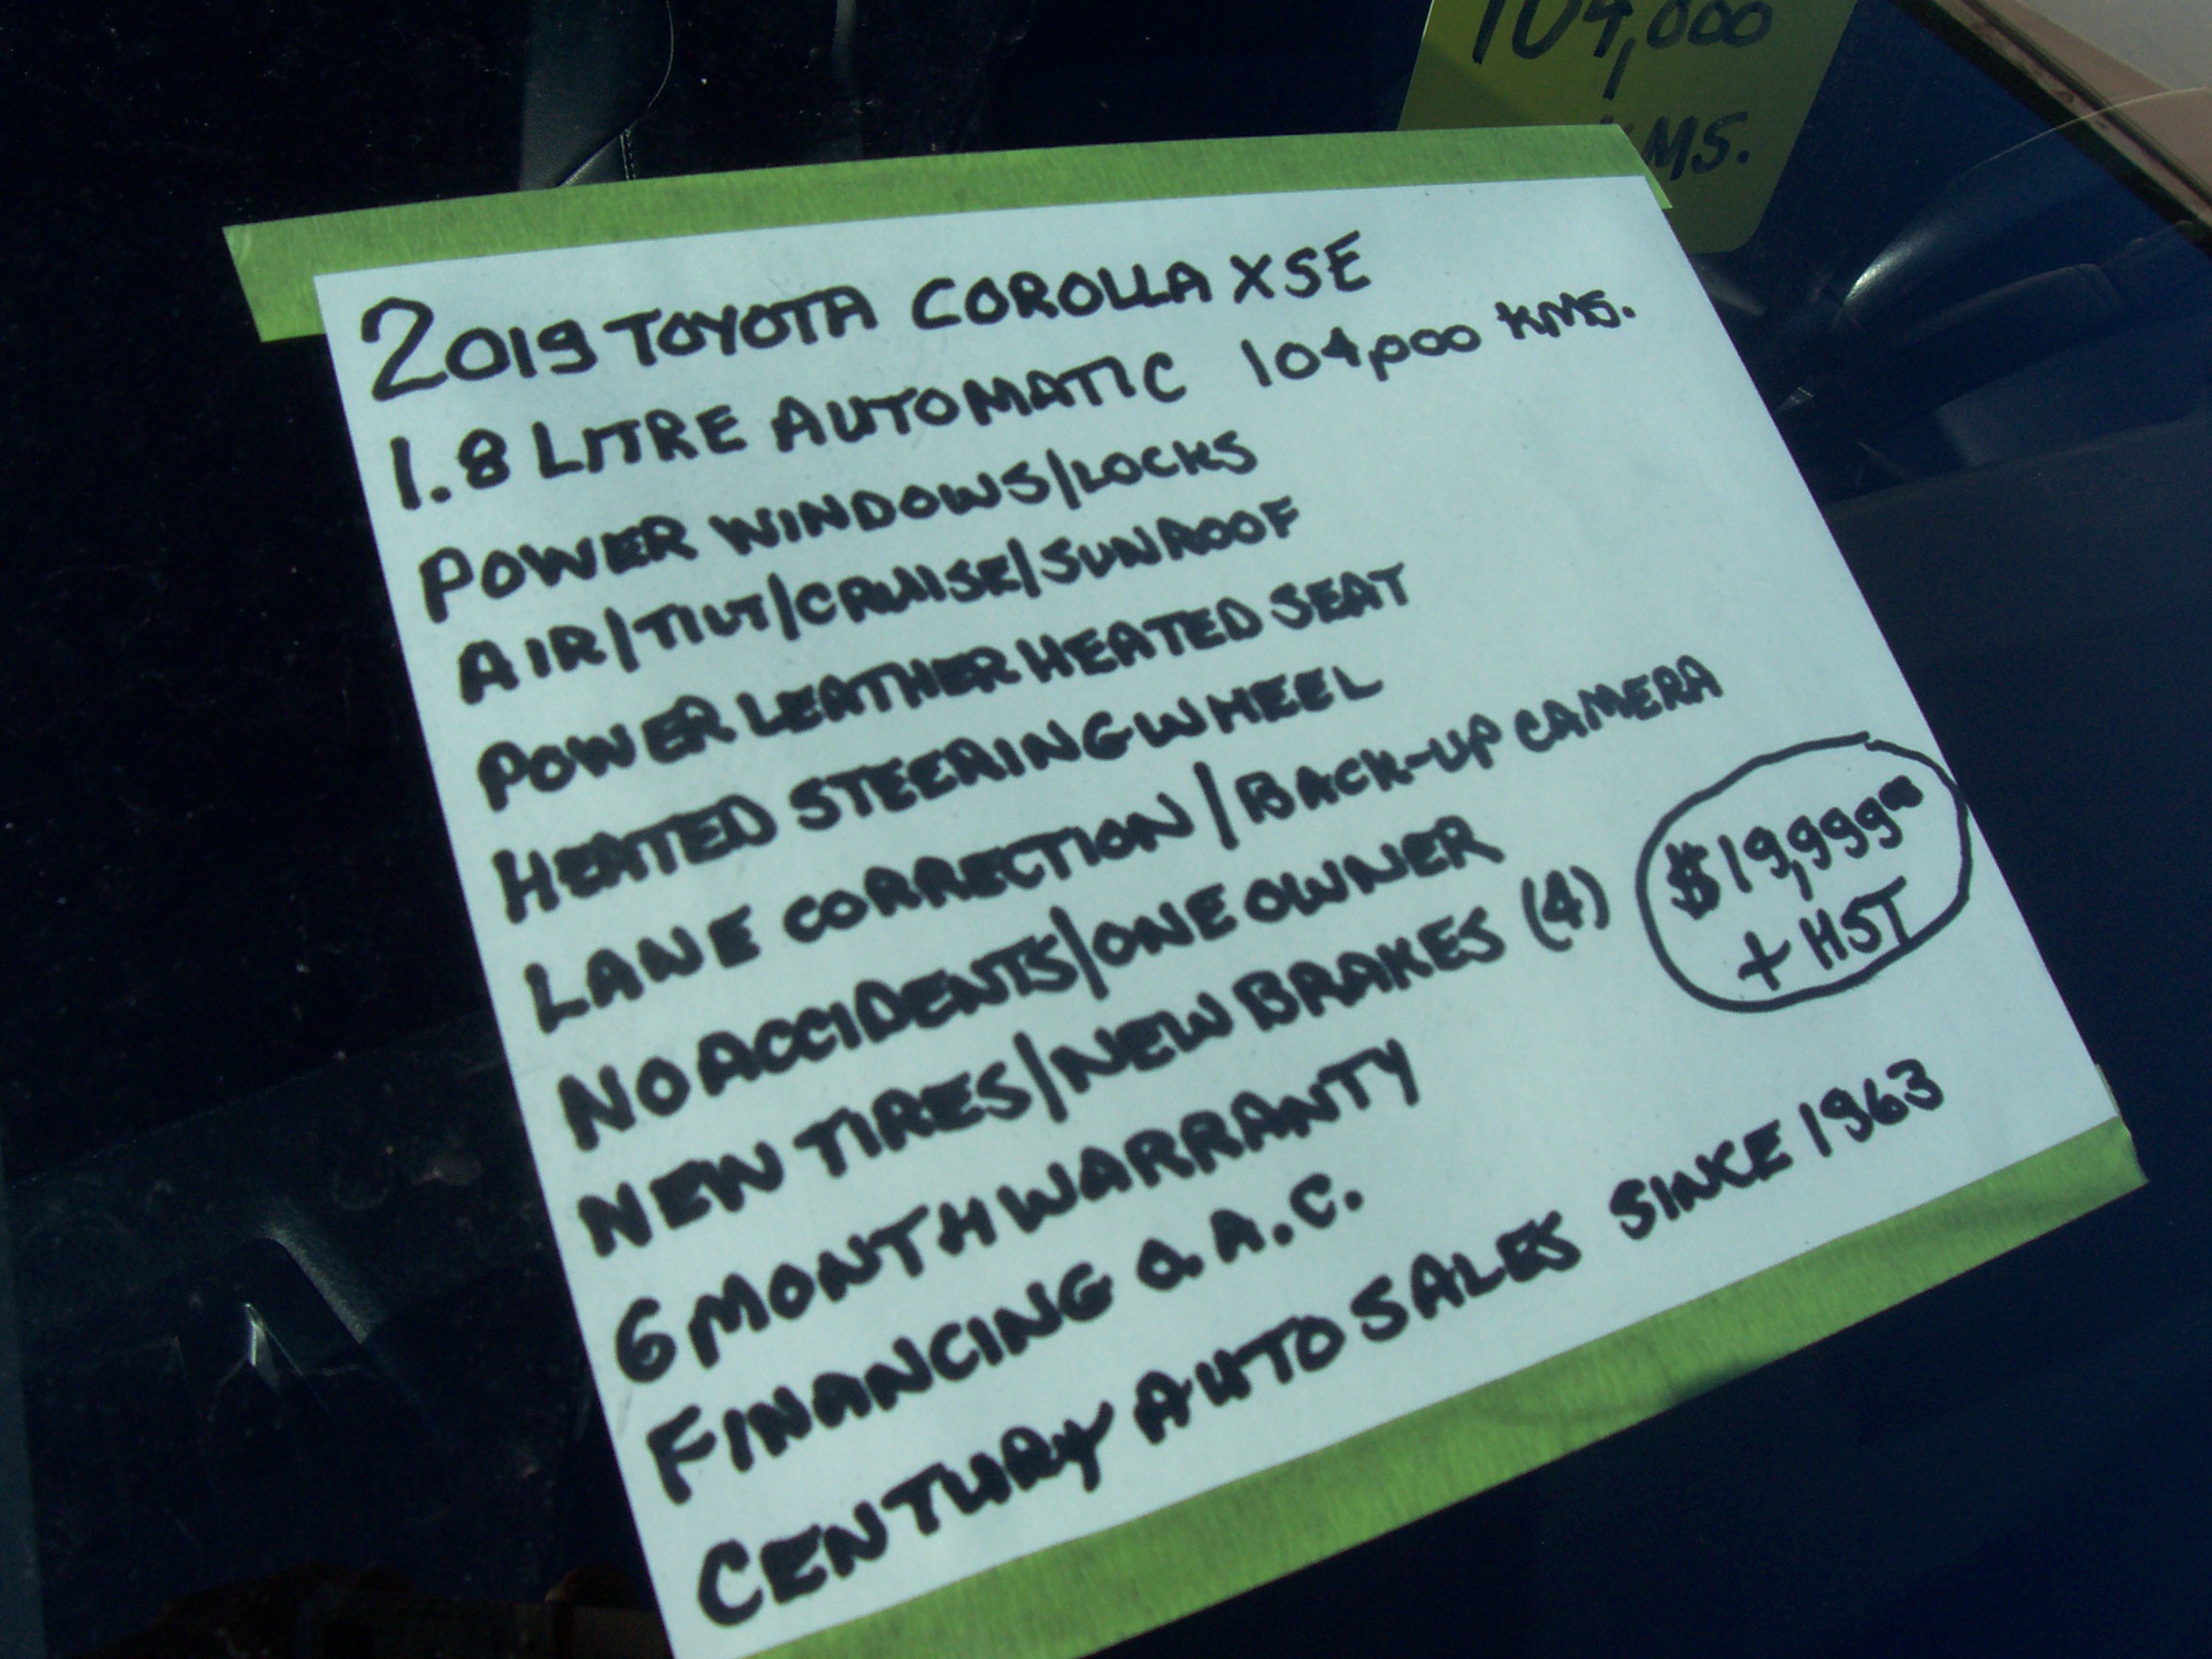 104,000
KMS.
2019 TOYOTA COROLLA XSE
1.8 LITRE AUTOMATIC 104,000 KMS.
POWER WINDOWS/LOCKS
AIR/TILT/CRUISE/SUNROOF
POWER LEATHER HEATED SEAT
HEATED STEERING WHEEL
LANE CORRECTION/BACK-UP CAMERA
NO ACCIDENTS/ONE OWNER
NEW TIRES/NEW BRAKES (4)
$19,999.00
+ HST
6 MONTH WARRANTY
FINANCING O.A.C.
CENTURY AUTO SALES SINCE 1963